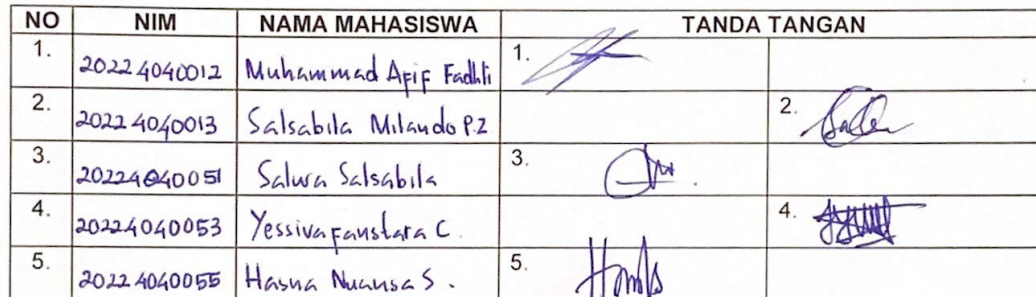 NO NIM NAMA MAHASISWA TANDA TANGAN
1. 20224040012 Muhammad Afif Fadhli 1.
2. 20224040013 Salsabila Milando P.Z 2.
3. 20224040051 Salwa Salsabila 3.
4. 20224040053 Yessiva Fanstara C. 4.
5. 20224040055 Hasna Nuansa S. 5.